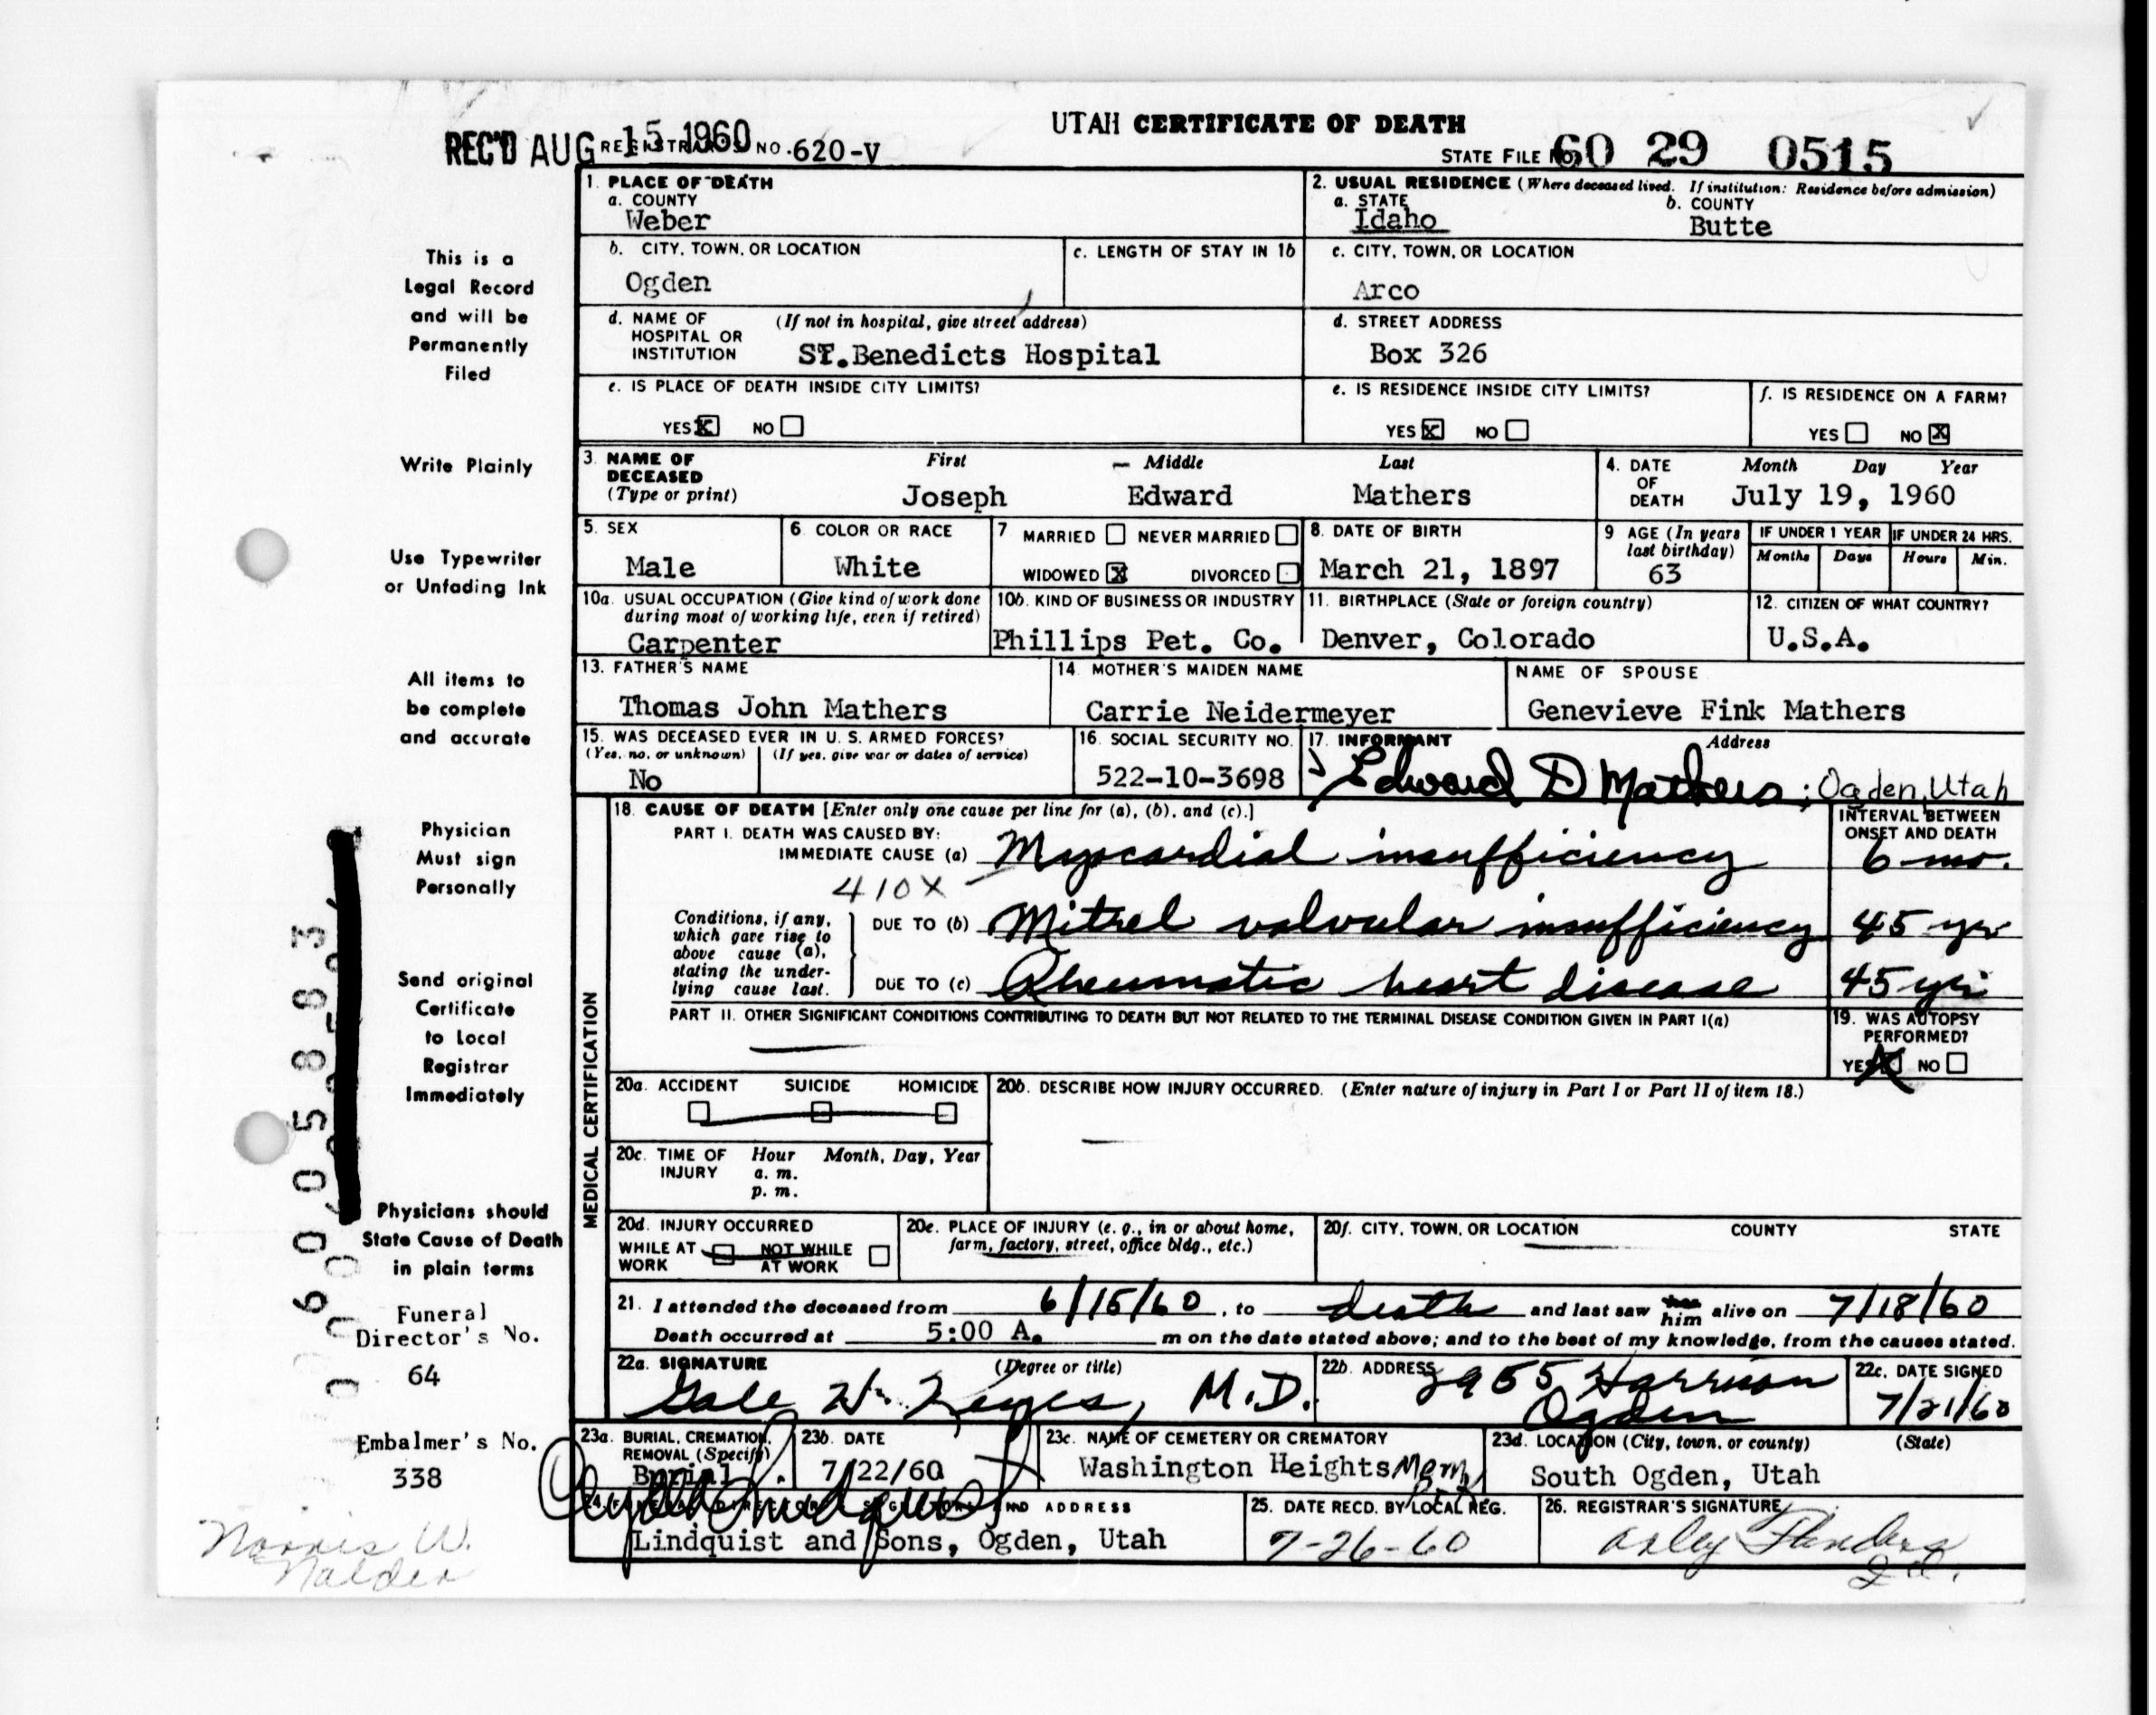 UTAH CERTIFICATE OF DEATH
REC'D AUG 15 1960 REGISTRAR'S NO. 620-V
STATE FILE NO. 60 29 0515
1. PLACE OF DEATH
a. COUNTY
Weber
2. USUAL RESIDENCE (Where deceased lived. If institution: Residence before admission)
a. STATE b. COUNTY
Idaho Butte
b. CITY, TOWN, OR LOCATION
Ogden
c. LENGTH OF STAY IN 1b
c. CITY, TOWN, OR LOCATION
Arco
d. NAME OF HOSPITAL OR INSTITUTION (If not in hospital, give street address)
ST.Benedicts Hospital
d. STREET ADDRESS
Box 326
e. IS PLACE OF DEATH INSIDE CITY LIMITS?
YES X NO
e. IS RESIDENCE INSIDE CITY LIMITS?
YES X NO
f. IS RESIDENCE ON A FARM?
YES NO X
3. NAME OF DECEASED (Type or print) First Middle Last
Joseph Edward Mathers
4. DATE OF DEATH Month Day Year
July 19, 1960
5. SEX
Male
6 COLOR OR RACE
White
7 MARRIED NEVER MARRIED
WIDOWED X DIVORCED
8. DATE OF BIRTH
March 21, 1897
9 AGE (In years last birthday)
63
IF UNDER 1 YEAR IF UNDER 24 HRS.
Months Days Hours Min.
10a. USUAL OCCUPATION (Give kind of work done during most of working life, even if retired)
Carpenter
10b. KIND OF BUSINESS OR INDUSTRY
Phillips Pet. Co.
11. BIRTHPLACE (State or foreign country)
Denver, Colorado
12. CITIZEN OF WHAT COUNTRY?
U.S.A.
13. FATHER'S NAME
Thomas John Mathers
14. MOTHER'S MAIDEN NAME
Carrie Neidermeyer
NAME OF SPOUSE
Genevieve Fink Mathers
15. WAS DECEASED EVER IN U. S. ARMED FORCES?
(Yes, no, or unknown) (If yes, give war or dates of service)
No
16. SOCIAL SECURITY NO.
522-10-3698
17. INFORMANT Address
Edward D Mathers; Ogden, Utah
MEDICAL CERTIFICATION
18. CAUSE OF DEATH [Enter only one cause per line for (a), (b), and (c).]
INTERVAL BETWEEN ONSET AND DEATH
PART I. DEATH WAS CAUSED BY:
IMMEDIATE CAUSE (a) Myocardial insufficiency 6 mo.
410X
Conditions, if any, which gave rise to above cause (a), stating the underlying cause last.
DUE TO (b) Mitrel valvular insufficiency 45 yr
DUE TO (c) Rheumatic heart disease 45 yrs
PART II. OTHER SIGNIFICANT CONDITIONS CONTRIBUTING TO DEATH BUT NOT RELATED TO THE TERMINAL DISEASE CONDITION GIVEN IN PART I(a)
19. WAS AUTOPSY PERFORMED?
YES X NO
20a. ACCIDENT SUICIDE HOMICIDE
20b. DESCRIBE HOW INJURY OCCURRED. (Enter nature of injury in Part I or Part II of item 18.)
20c. TIME OF INJURY Hour Month, Day, Year
a. m.
p. m.
20d. INJURY OCCURRED
WHILE AT WORK NOT WHILE AT WORK
20e. PLACE OF INJURY (e. g., in or about home, farm, factory, street, office bldg., etc.)
20f. CITY, TOWN, OR LOCATION COUNTY STATE
21. I attended the deceased from 6/15/60, to death and last saw her him alive on 7/18/60
Death occurred at 5:00 A. m on the date stated above; and to the best of my knowledge, from the causes stated.
22a. SIGNATURE (Degree or title)
Gale W. Keyes, M.D.
22b. ADDRESS
2955 Harrison
Ogden
22c. DATE SIGNED
7/21/60
23a. BURIAL, CREMATION, REMOVAL (Specify)
Burial
23b. DATE
7/22/60
23c. NAME OF CEMETERY OR CREMATORY
Washington Heights Mem
23d. LOCATION (City, town, or county) (State)
South Ogden, Utah
24. FUNERAL DIRECTOR'S SIGNATURE AND ADDRESS
Lindquist and Sons, Ogden, Utah
25. DATE RECD. BY LOCAL REG.
7-26-60
26. REGISTRAR'S SIGNATURE
This is a
Legal Record
and will be
Permanently
Filed
Write Plainly
Use Typewriter
or Unfading Ink
All items to
be complete
and accurate
Physician
Must sign
Personally
Send original
Certificate
to Local
Registrar
Immediately
Physicians should
State Cause of Death
in plain terms
Funeral
Director's No.
64
Embalmer's No.
338
Norris W.
Nalder